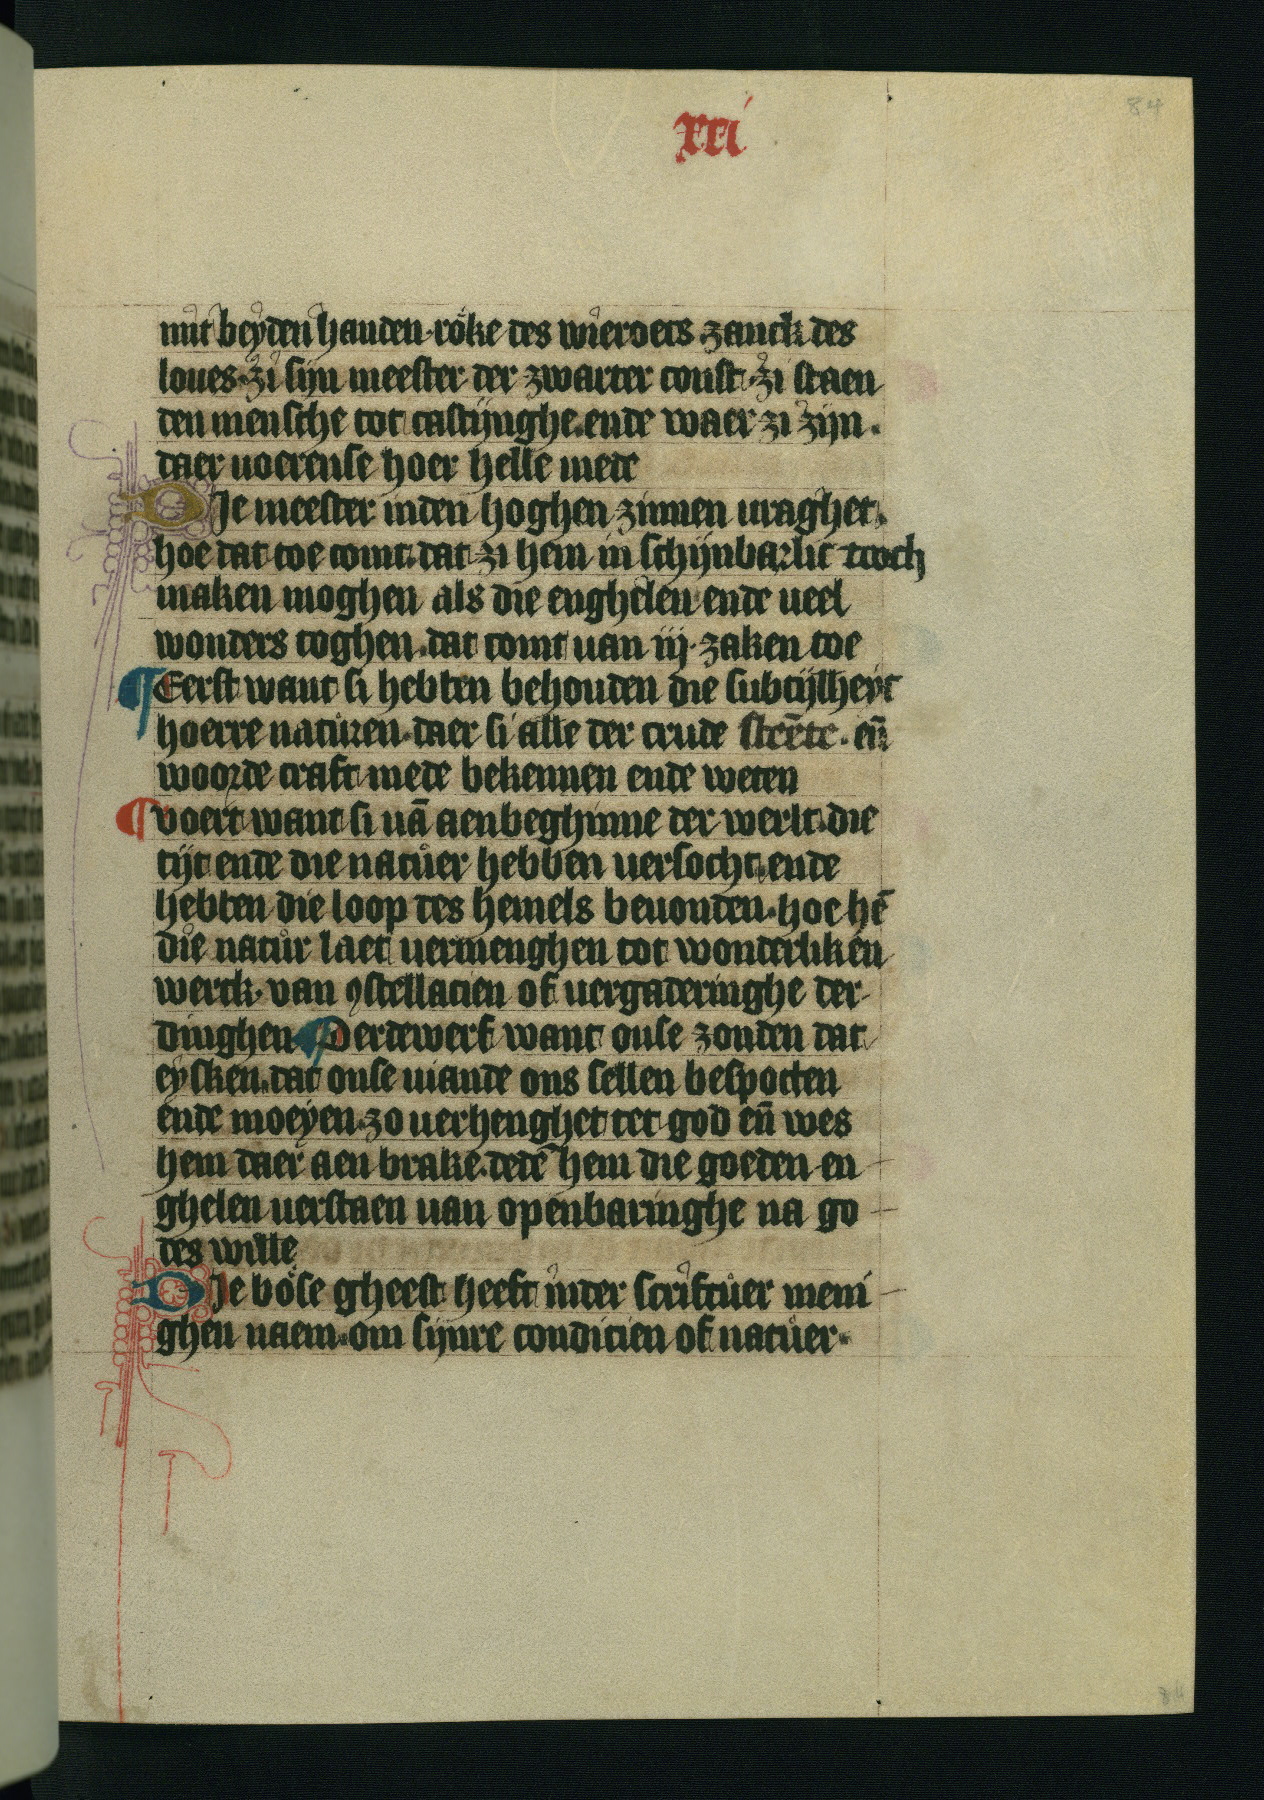 84
xxi
mit beyden handen · röke des wieroets zanck des
loues · zi sijn meester der zwarter const · zi staen
den mensche tot castijnghe · ende waer zi zijn ·
daer uoerense hoer helle mede
Die meester inden hoghen zinnen uraghet ·
hoe dat toe comt · dat zi hem in schijnbarlic
maken moghen als die enghelen ende ueel
wonders toghen · dat comt uan iij · zaken toe
¶ Eerst want si hebben behouden die subtijlheyt
hoerre naturen · daer si alle der crude stēte · eñ
woorde craft mede bekennen ende weten
¶ voert want si uā aenbeghinne der werlt · die
tijt ende die natuer hebben uersocht · ende
hebben die loop des hemels beuonden · hoe hē
die natur laet uermenghen tot wonderliken
werck · van ꝯstellacien of uergaderinghe der
dinghen ¶ Derdewerf want onse zonden dat
eysken · dat onse uiande ons sellen bespotten
ende moeyen · zo uerhenghet tet god eñ wes
hem daer aen brake · dedē hem die goeden en
ghelen uerstaen uan openbaringhe na go
des wille
Die böse gheest heeft inder scriftuer meni
ghen naem · om sijnre condicien of natuer ·